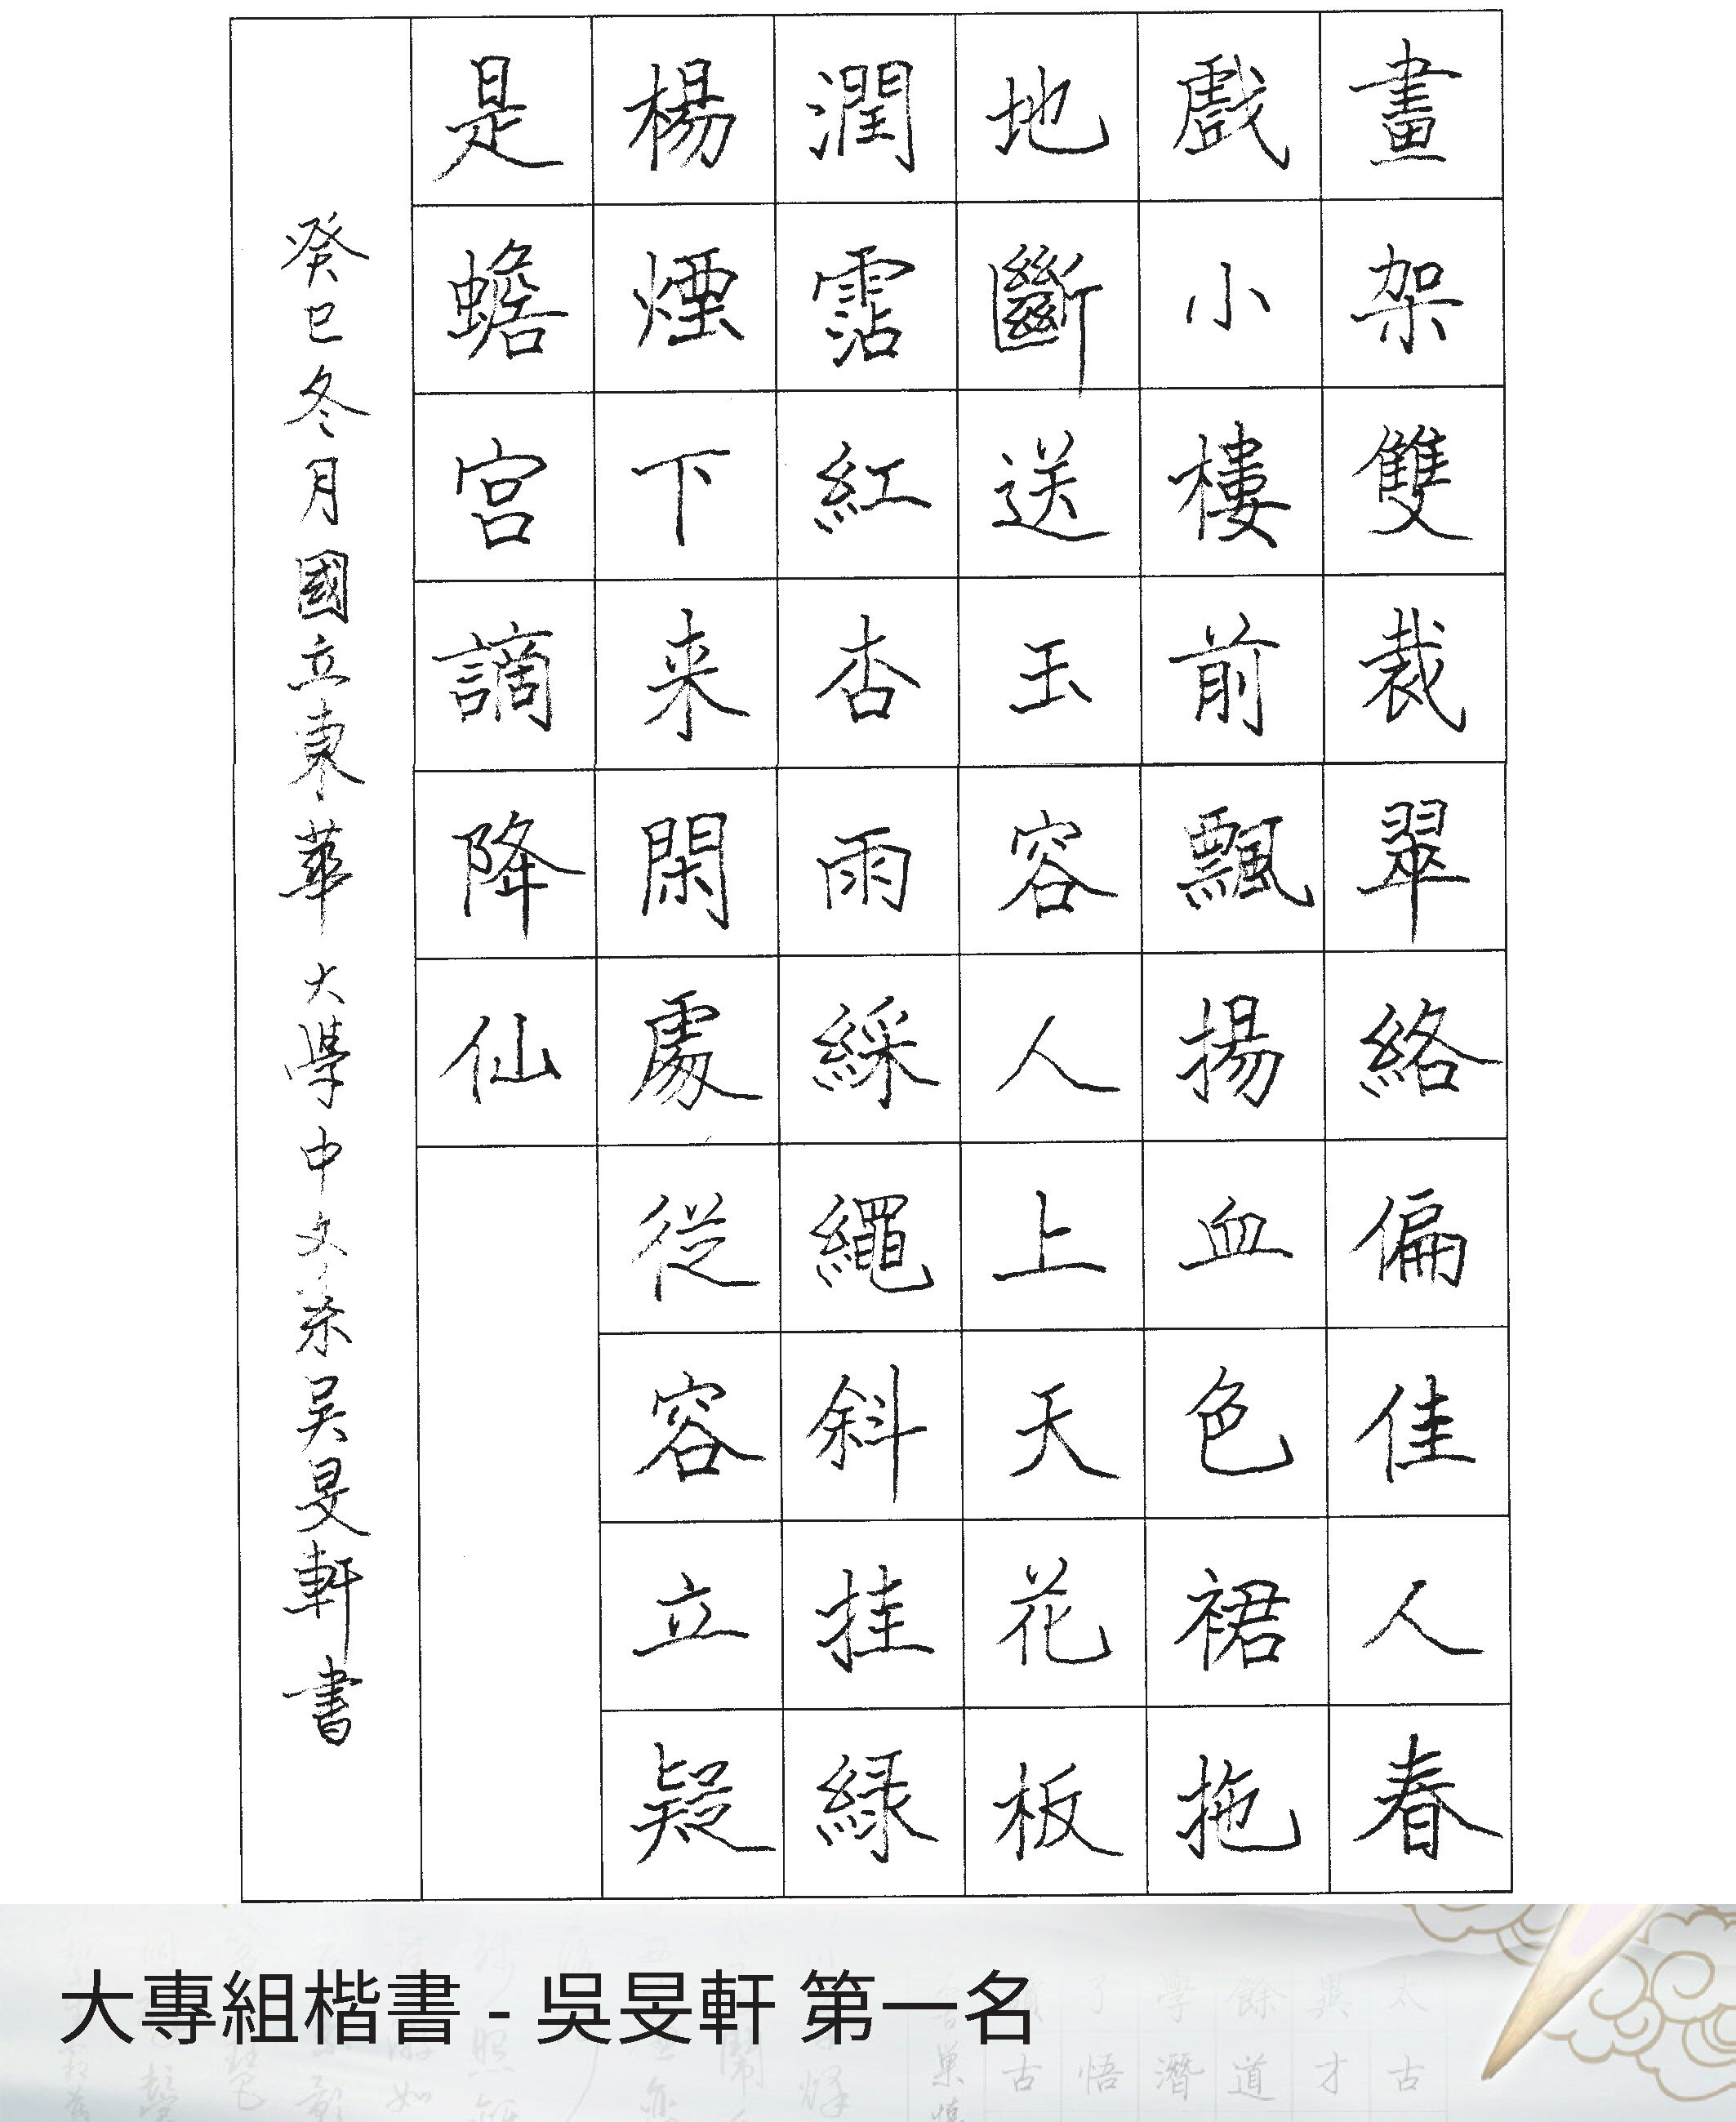 畫架雙裁翠絡偏佳人春
戲小樓前飄揚血色裙拖
地斷送玉容人上天花板
潤霑紅杏雨綵繩斜挂綠
楊煙下来閑處從容立疑
是蟾宮謫降仙
癸巳冬月國立東華大學中文系吳旻軒書
大專組楷書 - 吳旻軒 第一名